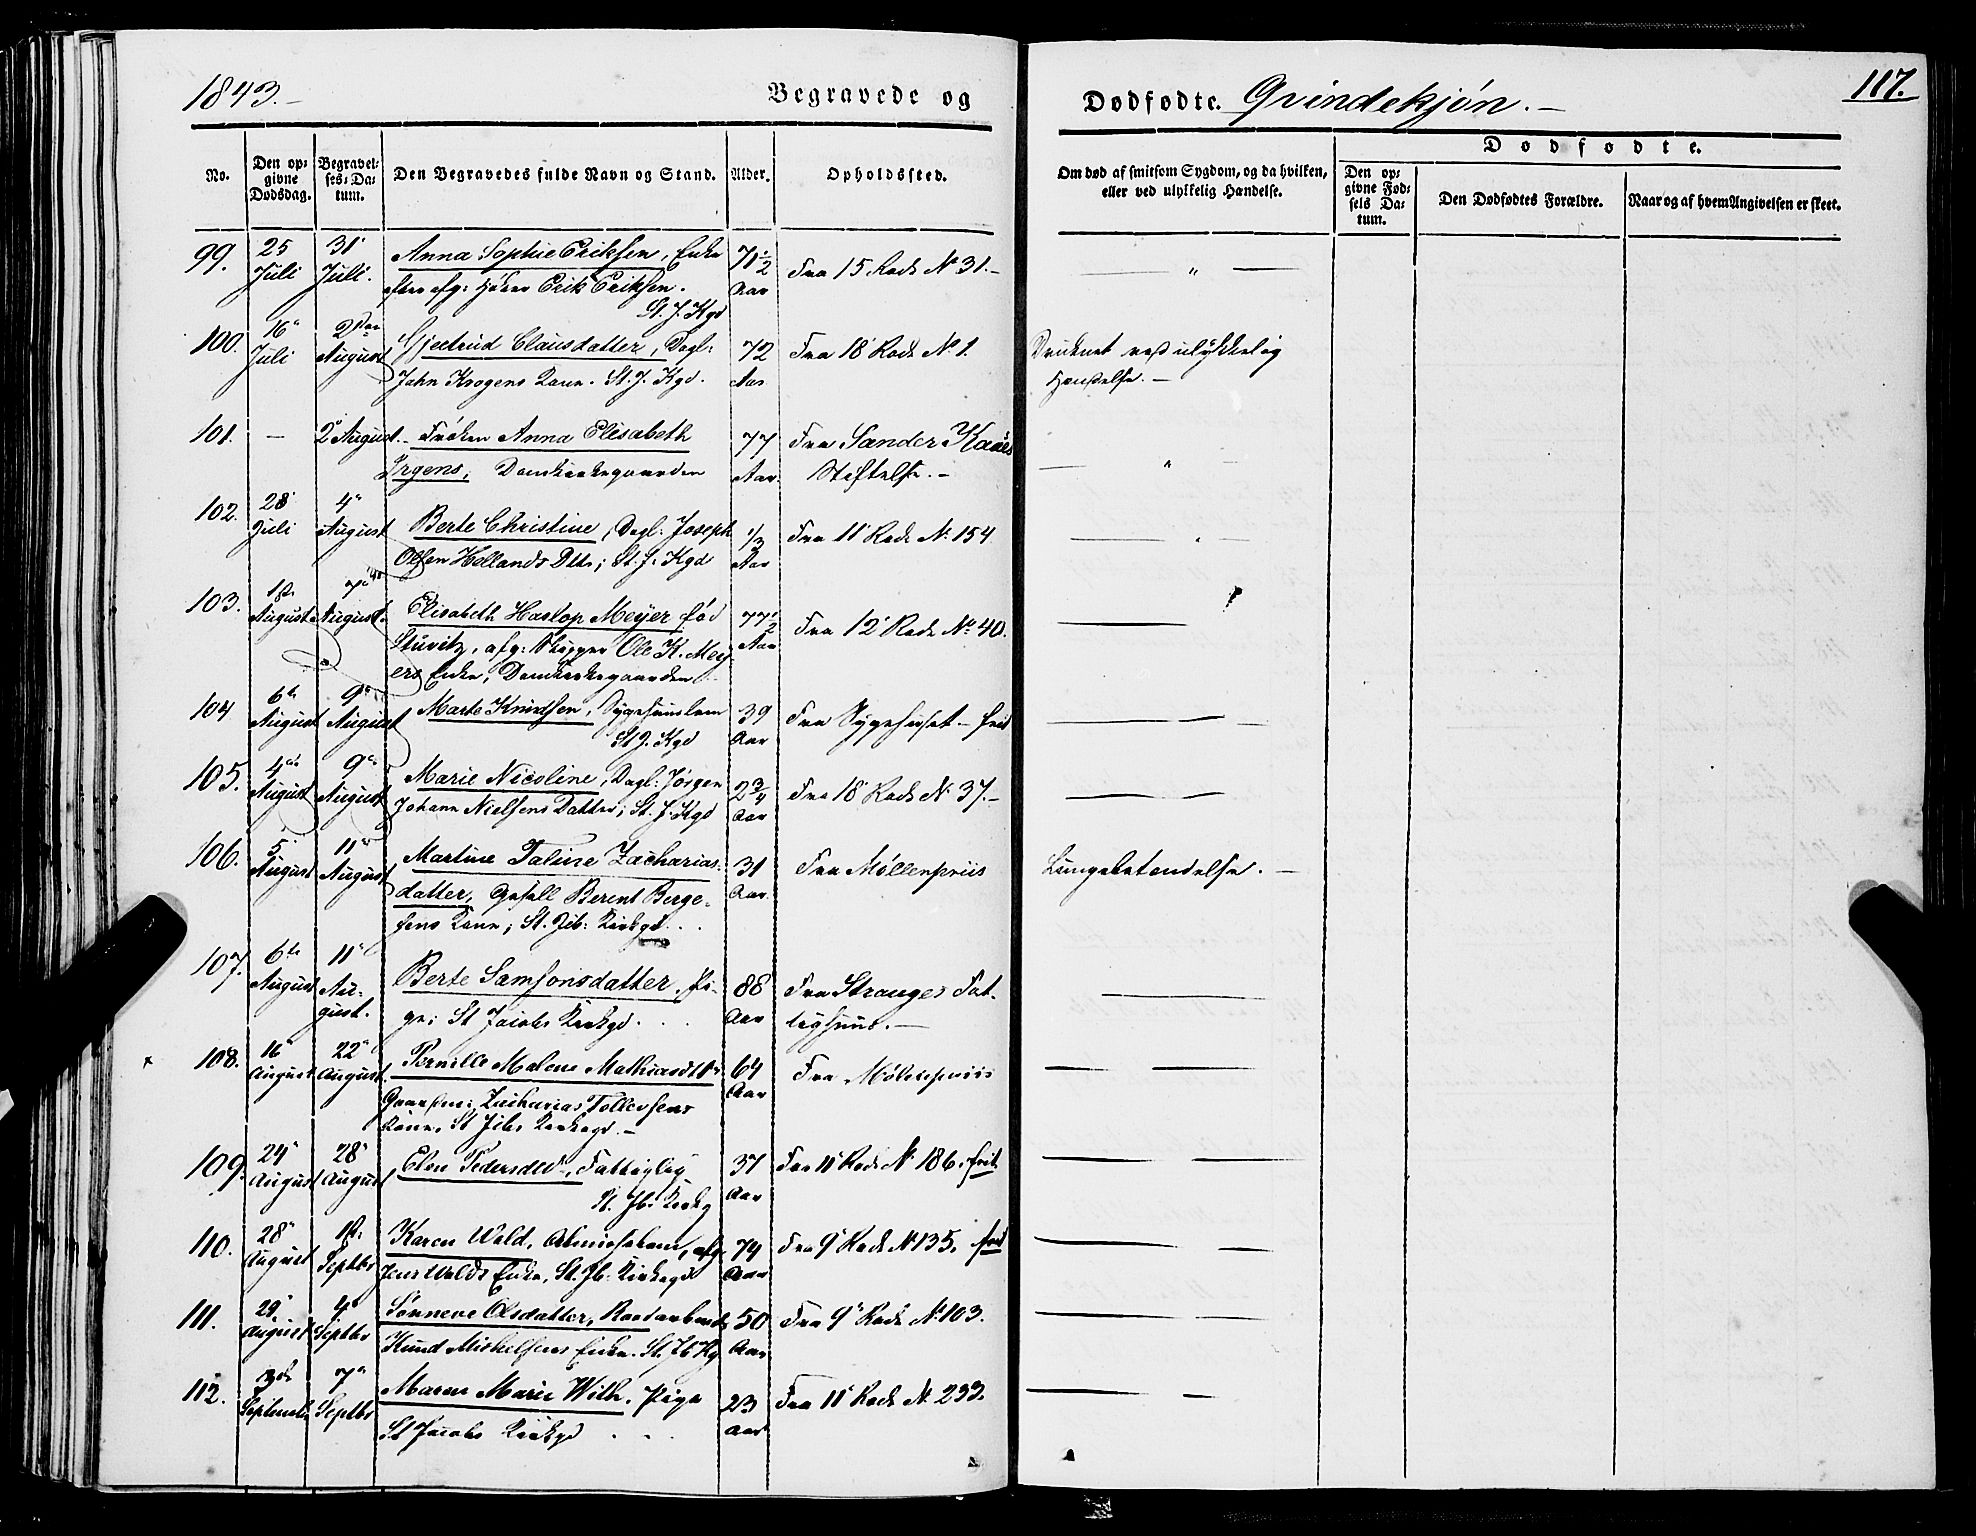 1843.–
Begravede og
Dødfødte. Qvindekjøn.–
117.
No.
Den opgivne Dødsdag.
Begravelses-Datum.
Den Begravedes fulde Navn og Stand.
Alder.
Opholdssted.
Om død af smitsom Sygdom, og da hvilken, eller ved ulykkelig Hændelse.
Dødfødte.
Den opgivne Fødsels Datum.
Den Dødfødtes Forældre.
Naar og af hvem Angivelsen er skeet.
99. 25 Juli 31' Juli. Anna Sophie Eriksen, Enke
efter afg: Hører Erik Eriksen.
St. J. Kgd
71½ Aar
Fra 15 Rode No 31.–
100. 16" Juli 2den August Gjertrud Clausdatter, Dagl:
John Krogens Kone. St. J. Kgd.
72 Aar
Fra 18' Rode No 1.
Druknet ved ulykkelig
Hændelse.–
101. – 2' August. Frøken Anna Elisabeth
Irgens, Domkirkegaarden
77 Aar
Fra Sander Kaaes
Stiftelse.–
102. 28' Juli 4" August Berte Christine, Dagl: Joseph
Olsen Hellands Dttr; St. J. Kgd
1/3 Aar
Fra 11' Rode No 154
103. 1ste August. 7' August. Elisabeth Haslop Meyer, fød
Stuvitz, afg: Skipper Ole K. Mey-
ers Enke, Domkirkegaarden.
77½ Aar
Fra 12' Rode No 40.
104 6te August 9" August Marte Knudsen, Sygehuuslem
St J. Kgd
39 Aar
Fra Sygehuset – frit
105. 4de August 9" August Marie Nicoline, Dagl: Jørgen
Johann Nielsens Datter; St. J. Kgd
2¾ Aar
Fra 18' Rode No 37.–
106. 5' August 11" August Martine Taline Zacharias-
datter, Gesell Berent Berge-
sens Kone; St. Jcb: Kirkgd...
31 Aar
Fra Møllenpriis
Lungebetændelse.–
107. 6te August 11" Au-
gust. Berte Samsonsdatter, Pi-
ge; St Jacobs Kirkgd...
88 Aar
Fra Stranges Fat-
tighuus.–
108. 16" August 22" August. Pernille Malene Mathiasdtter
Gaardm: Zacharias Tollevsens
Kone, St Jcbs Kirkegd.–
64 Aar
Fra Møllepriis
109. 24" August 28" August Elen Pedersdtr, Fattiglig
St. Jb: Kirkg
37 Aar
Fra 11' Rode No 186. frit
110. 28" August 1ste Septbr Karen Wald, Almisselem, afg.
Jens Walds Enke, St. Jb: Kirkegd
74 Aar
Fra 9' Rode No 135. frit
111. 29" August 4" Septbr Sønneve Olsdatter, Roedarbeids
Knud Mickelsens Enke. St. Jb Kg
50 Aar
Fra 9' Rode No 103.
112. 3die Septembr 7" Septbr Maren Marie Wilh, Pige
St Jacobs Kirkgd...
23 Aar
Fra 11' Rode No 233.